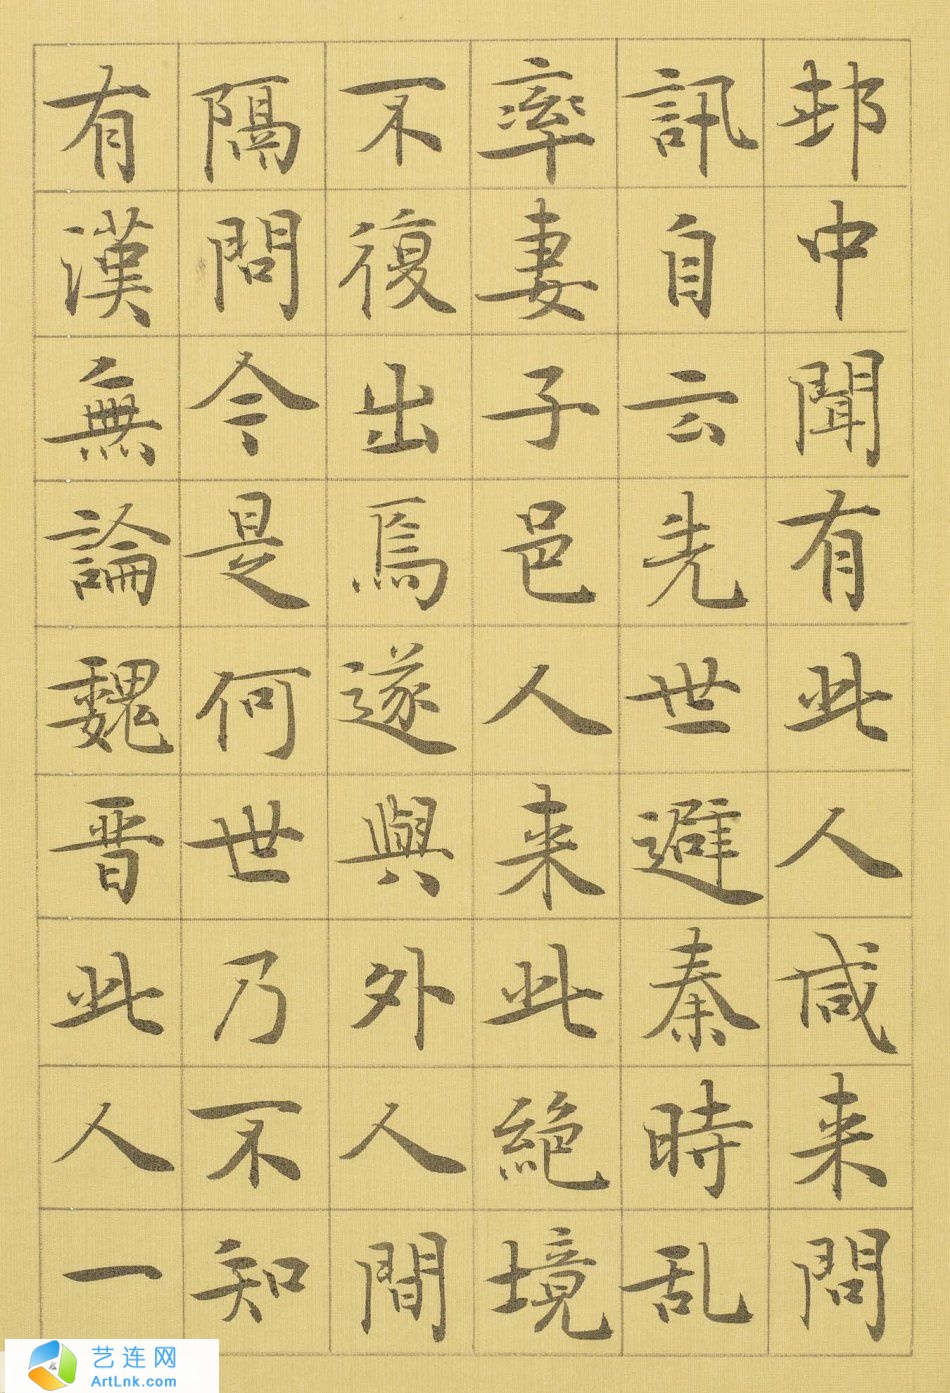 邨中聞有此人咸来問
訊自云先世避秦時乱
率妻子邑人来此絶境
不復出焉遂與外人間
隔問今是何世乃不知
有漢無論魏晋此人一
艺连网
ArtLnk.com